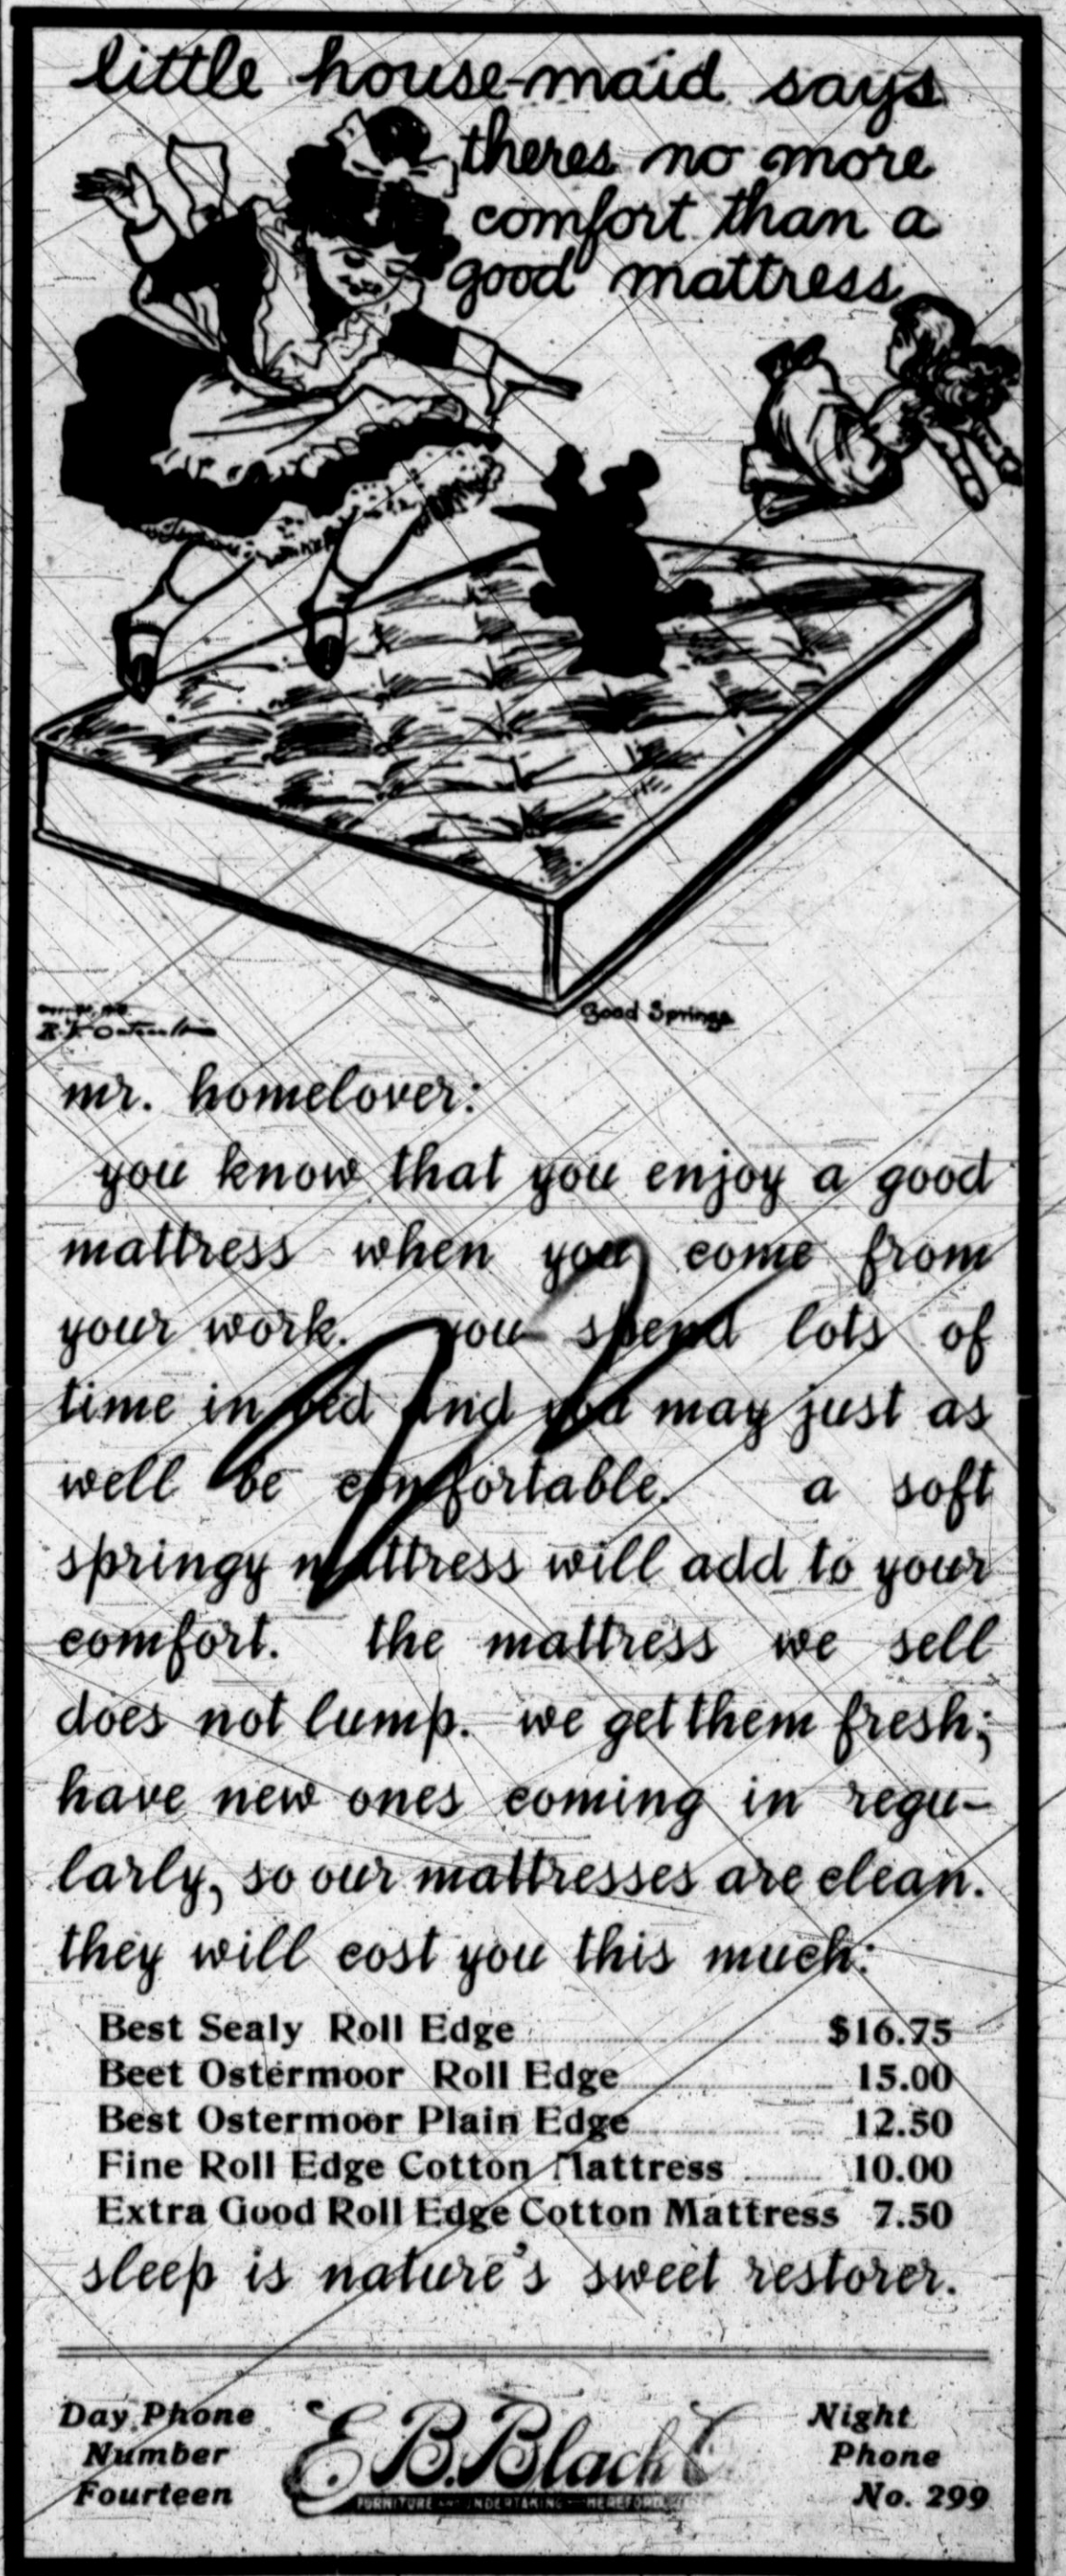 little house-maid says
theres no more
comfort than a
good mattress
Good Springs
mr. homelover:
you know that you enjoy a good
mattress when you come from
your work. you spend lots of
time in bed and you may just as
well be comfortable. a soft
springy mattress will add to your
comfort. the mattress we sell
does not lump. we get them fresh;
have new ones coming in regu-
larly, so our mattresses are clean.
they will cost you this much:
Best Sealy Roll Edge $16.75
Beet Ostermoor Roll Edge 15.00
Best Ostermoor Plain Edge 12.50
Fine Roll Edge Cotton Mattress 10.00
Extra Good Roll Edge Cotton Mattress 7.50
sleep is nature's sweet restorer.
Day Phone
Number
Fourteen
E. B. Black
FURNITURE AND UNDERTAKING HEREFORD
Night
Phone
No. 299